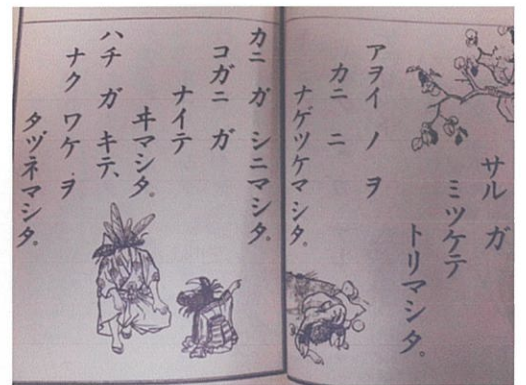 サル ガ
ミツケテ
トリマシタ。
アヲイ ノ ヲ
カニ ニ
ナゲツケマシタ。
カニ ガ シニマシタ。
コガニ ガ
ナイテ
ヰマシタ。
ハチ ガ キテ、
ナク ワケ ヲ
タヅネマシタ。